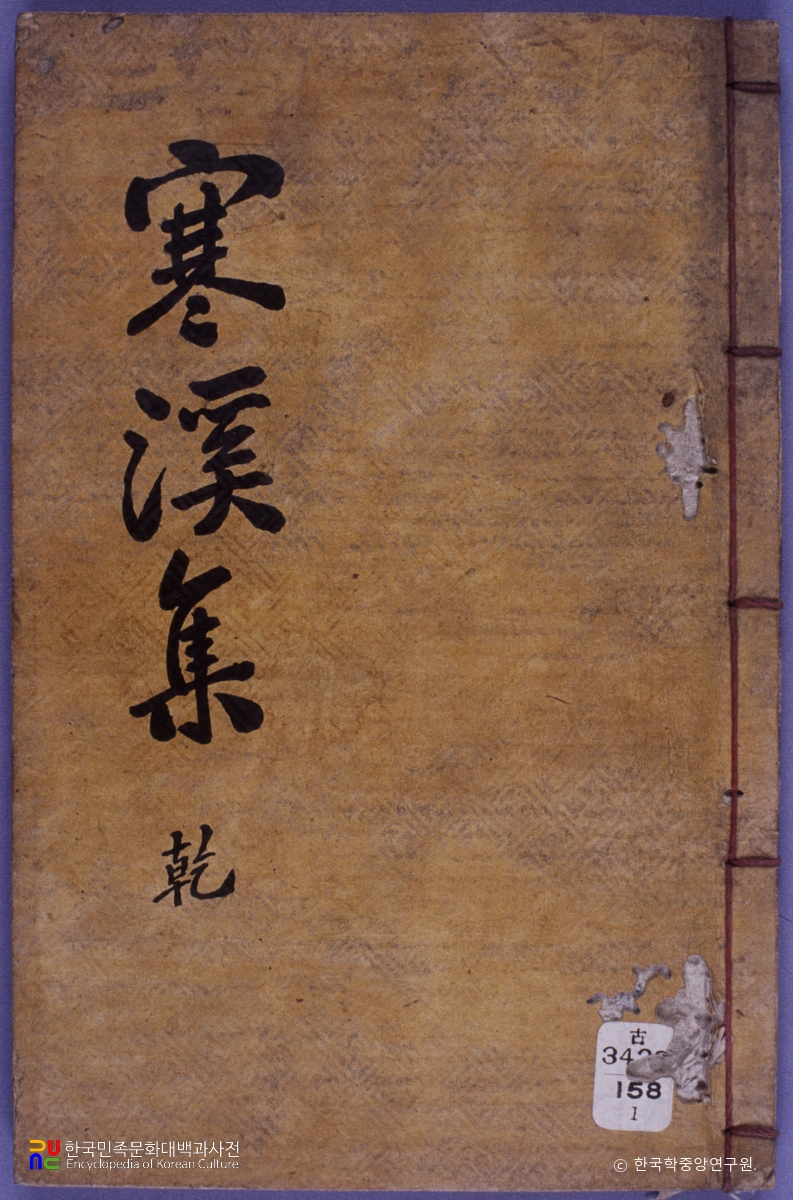 寒溪集
乾
古
158
1
한국민족문화대백과사전
Encyclopedia of Korean Culture
© 한국학중앙연구원.